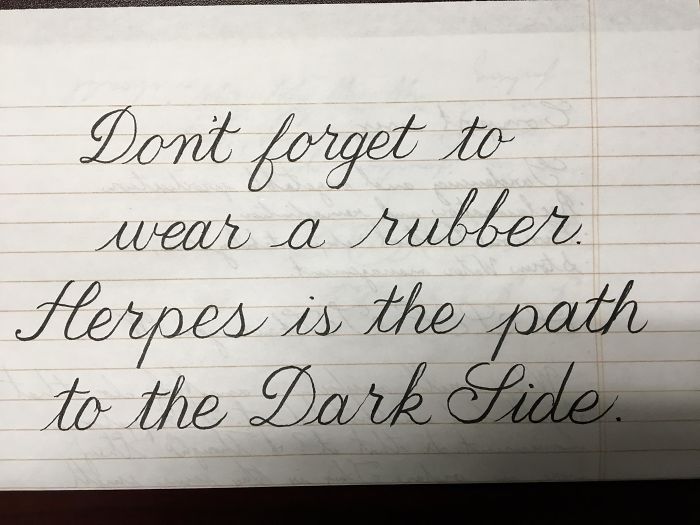 Don't forget to
wear a rubber.
Herpes is the path
to the Dark Side.